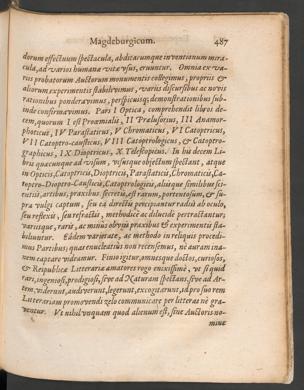 Magdeburgicum. 487
dorum effectuum spectacula, abditarumque inventionum mira-
cula, ad varios humanæ vitæ usus, eruuntur. Omnia ex va-
riis probatorum Auctorum monumentis collegimus, propriis &
aliorum experimentis stabilivimus, variis discursibus ac novis
rationibus ponderavimus, perspicuisq; demonstrationibus sub-
inde confirmavimus. Pars I Optica, comprehendit libros de-
cem, quorum I est Proœmialis, II Prælusorius, III Anamor-
photicus, IV Parastaticus, V Chromaticus, VI Catoptricus,
VII Catoptro-causticus, VIII Catoptrologicus, & Catoptro-
graphicus, IX Dioptricus, X Telescopicus. In his decem Li-
bris quæcunque ad visum, visusque objectum spectant, atque
in Opticis, Catoptricis, Dioptricis, Parastaticis, Chromaticis, Ca-
toptro-Dioptro-Causticis, Catoptrologicis, aliisque similibus sci-
entiis, artibus, praxibus, secretis, est rarum, portentosum, & su-
pra vulgi captum, seu ea directè percipiantur radiis ab oculo,
seu reflexis, seu refractis, methodicè ac dilucidè pertractantur,
variisque, raris, ac minus obviis praxibus & experimentis sta-
biliuntur. Eâdem varietate, ac methodo in reliquis procedi-
mus Partibus; quas enucleatius non recensemus, nè auram ina-
nem captare videamur. Finio igitur, omnesque doctos, curiosos,
& Reipublicæ Litterariæ amatores rogo enixissimè, ut si quid
rari, ingeniosi, prodigiosi, sive ad Naturam spectans, sive ad Ar-
tem, viderunt, audiverunt, legerunt, excogitarunt, id pro suo rem
Litterariam promovendi zelo communicare per litteras nè gra-
ventur. Ut nihil unquam quod alienum est, sine Auctoris no-
mine